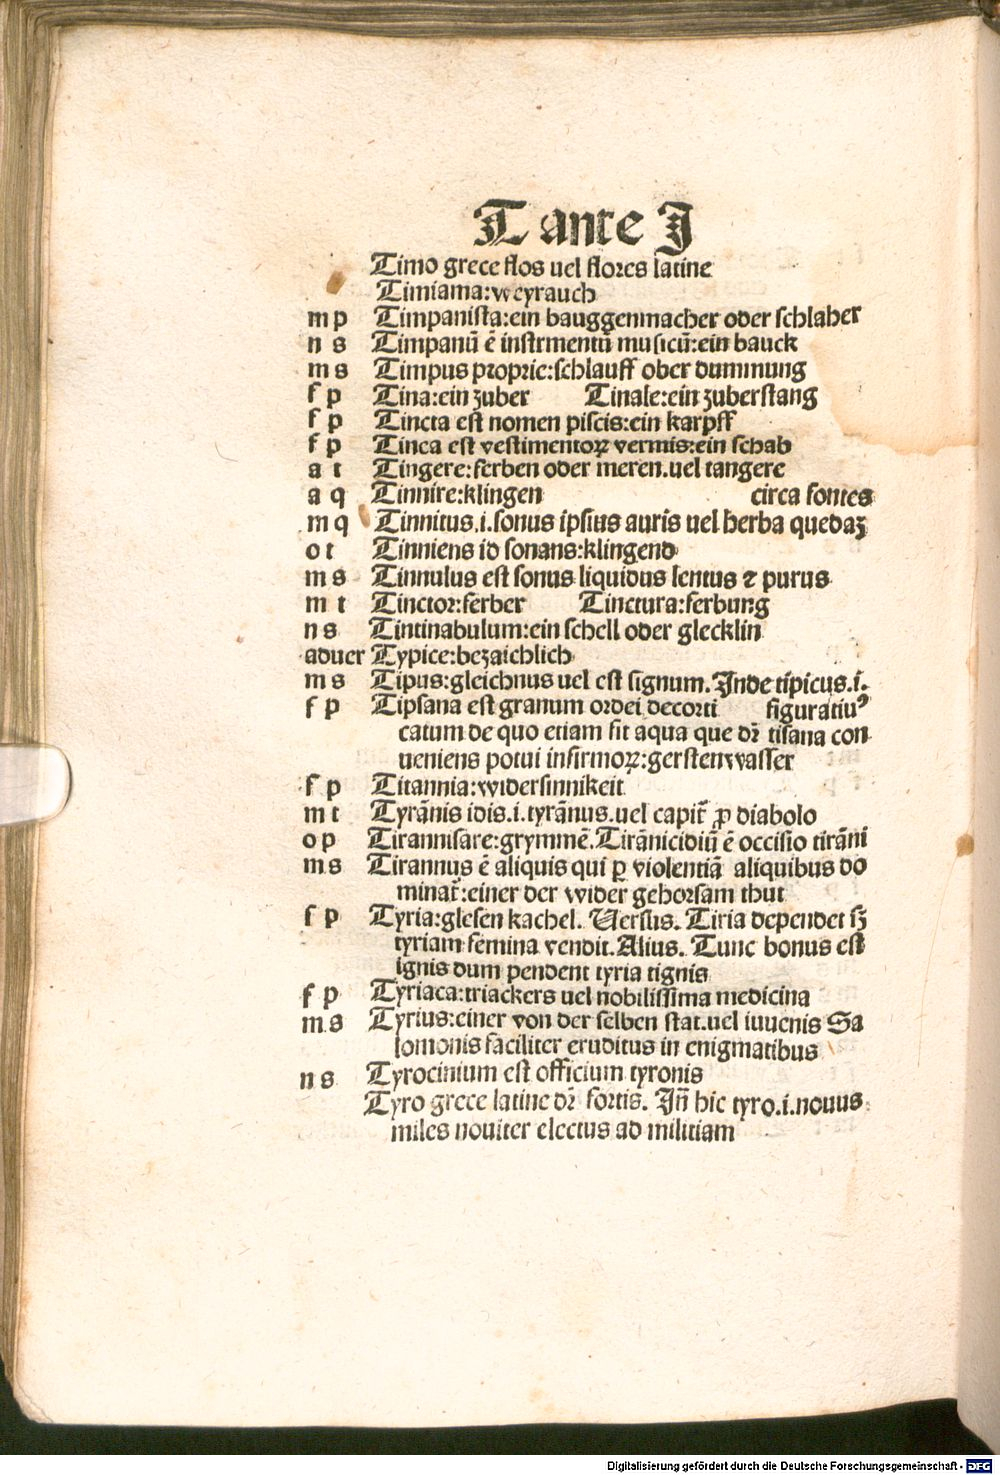 T ante J
Timo grece flos uel flores latine
Timiama:weyrauch
m p Timpanista:ein bauggenmacher oder schlaher
n s Timpanū ē instrmentū musicū:ein bauck
m s Timpus proprie:schlauff ober dummung
f p Tina:ein zuber Tinale:ein zuberstang
f p Tincta est nomen piscis:ein karpff
f p Tinca est vestimentoꝝ vermis:ein schab
a t Tingere:ferben oder meren.uel tangere
a q Tinnire:klingen circa fontes
m q Tinnitus.i.sonus ipsius auris uel herba quedaꝫ
o t Tinniens id sonans:klingend
m s Tinnulus est sonus liquidus lentus ⁊ purus
m t Tinctor:ferber Tinctura:ferbung
n s Tintinabulum:ein schell oder glecklin
aduer Typice:bezaichlich
m s Tipus:gleichnus uel est signum.Inde tipicus.i.
f p Tipsana est granum ordei decorti figuratiuꝰ
catum de quo etiam fit aqua que dr̄ tisana con
ueniens potui infirmoꝝ:gerstenwasser
f p Titannia:widersinnikeit
m t Tyrānis idis.i.tyrānus.uel capit̄ ꝓ diabolo
o p Tirannisare:grymmē.Tirānicidiū ē occisio tirāni
m s Tirannus ē aliquis qui ꝑ violentiā aliquibus do
minat̄:einer der wider gehorsam thut
f p Tyria:glesen kachel. Uersus. Tiria dependet sꝫ
tyriam femina vendit.Alius. Tunc bonus est
ignis dum pendent tyria tignis
f p Tyriaca:triackers uel nobilissima medicina
m s Tyrius:einer von der selben stat.uel iuuenis Sa
lomonis faciliter eruditus in enigmatibus
n s Tyrocinium est officium tyronis
Tyro grece latine dr̄ fortis. Iñ hic tyro.i.nouus
miles nouiter electus ad militiam
Digitalisierung gefördert durch die Deutsche Forschungsgemeinschaft - DFG